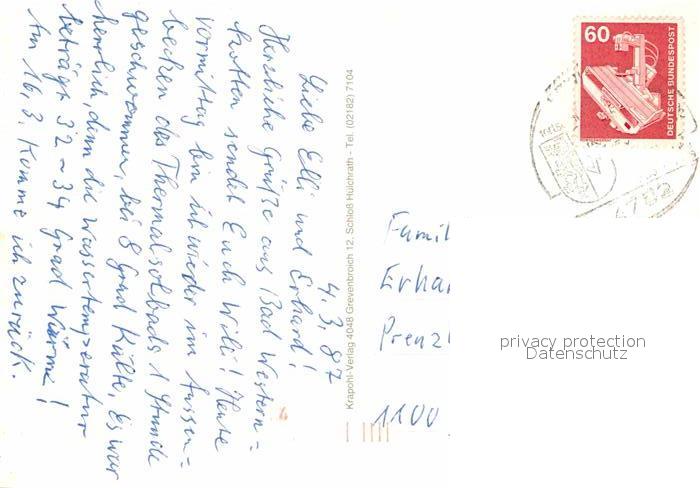 4.3.87
Liebe Elli und Erhard!
Herzliche Grüße aus Bad Western=
kotten sendet Euch Willi! Heute
vormittag bin ich wieder im Aussen=
becken des Thermalsolbads 1 Stunde
geschwommen, bei 8 Grad Kälte, Es war
herrlich, denn die Wassertemperatur
beträgt 32 - 34 Grad Wärme!
Am 16.3. komme ich zurück.
Krapohl-Verlag 4048 Grevenbroich 12, Schloß Hülchrath - Tel. (02182) 7104
60
DEUTSCHE BUNDESPOST
4782
Famil
Erha
Prenzl
1100
privacy protection
Datenschutz